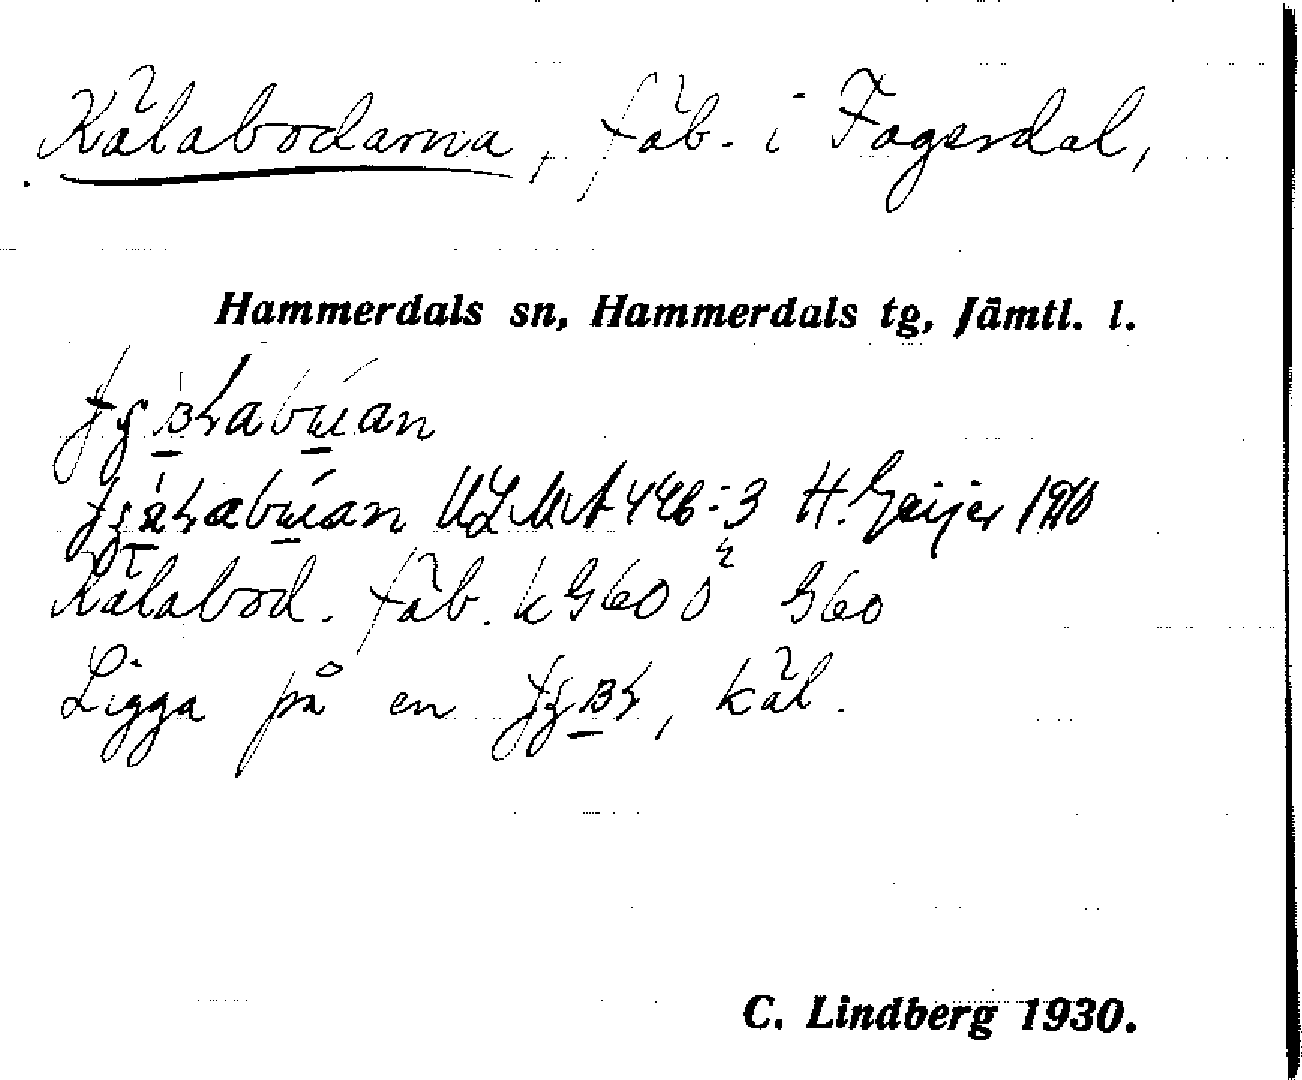 Kälabodarna, fäb. i Fagerdal,
Hammerdals sn, Hammerdals tg, Jämtl. l.
ULMA 446:3 H. Geijer 1910
Kälabod. fäb. k G60 ö G60
Ligga på en , käl.
C. Lindberg 1930.